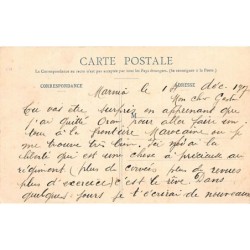 CARTE POSTALE
La Correspondance au recto n'est pas acceptée par tous les Pays étrangers. (Se renseigner à la Poste.)
CORRESPONDANCE ADRESSE
Marnia le 1 déc. 190
Mon cher Gaston
Tu vas être surpris en apprenant que
j'ai quitté Oran pour aller faire son
à la frontière Marocaine où je
me trouve très bien. Ici moi la
liberté qui est une chose si précieuse au
régiment (plus de corvées plus de revues
plus d'exercice) c'est le rêve. Dans
quelques jours je t'écrirai de nouveau